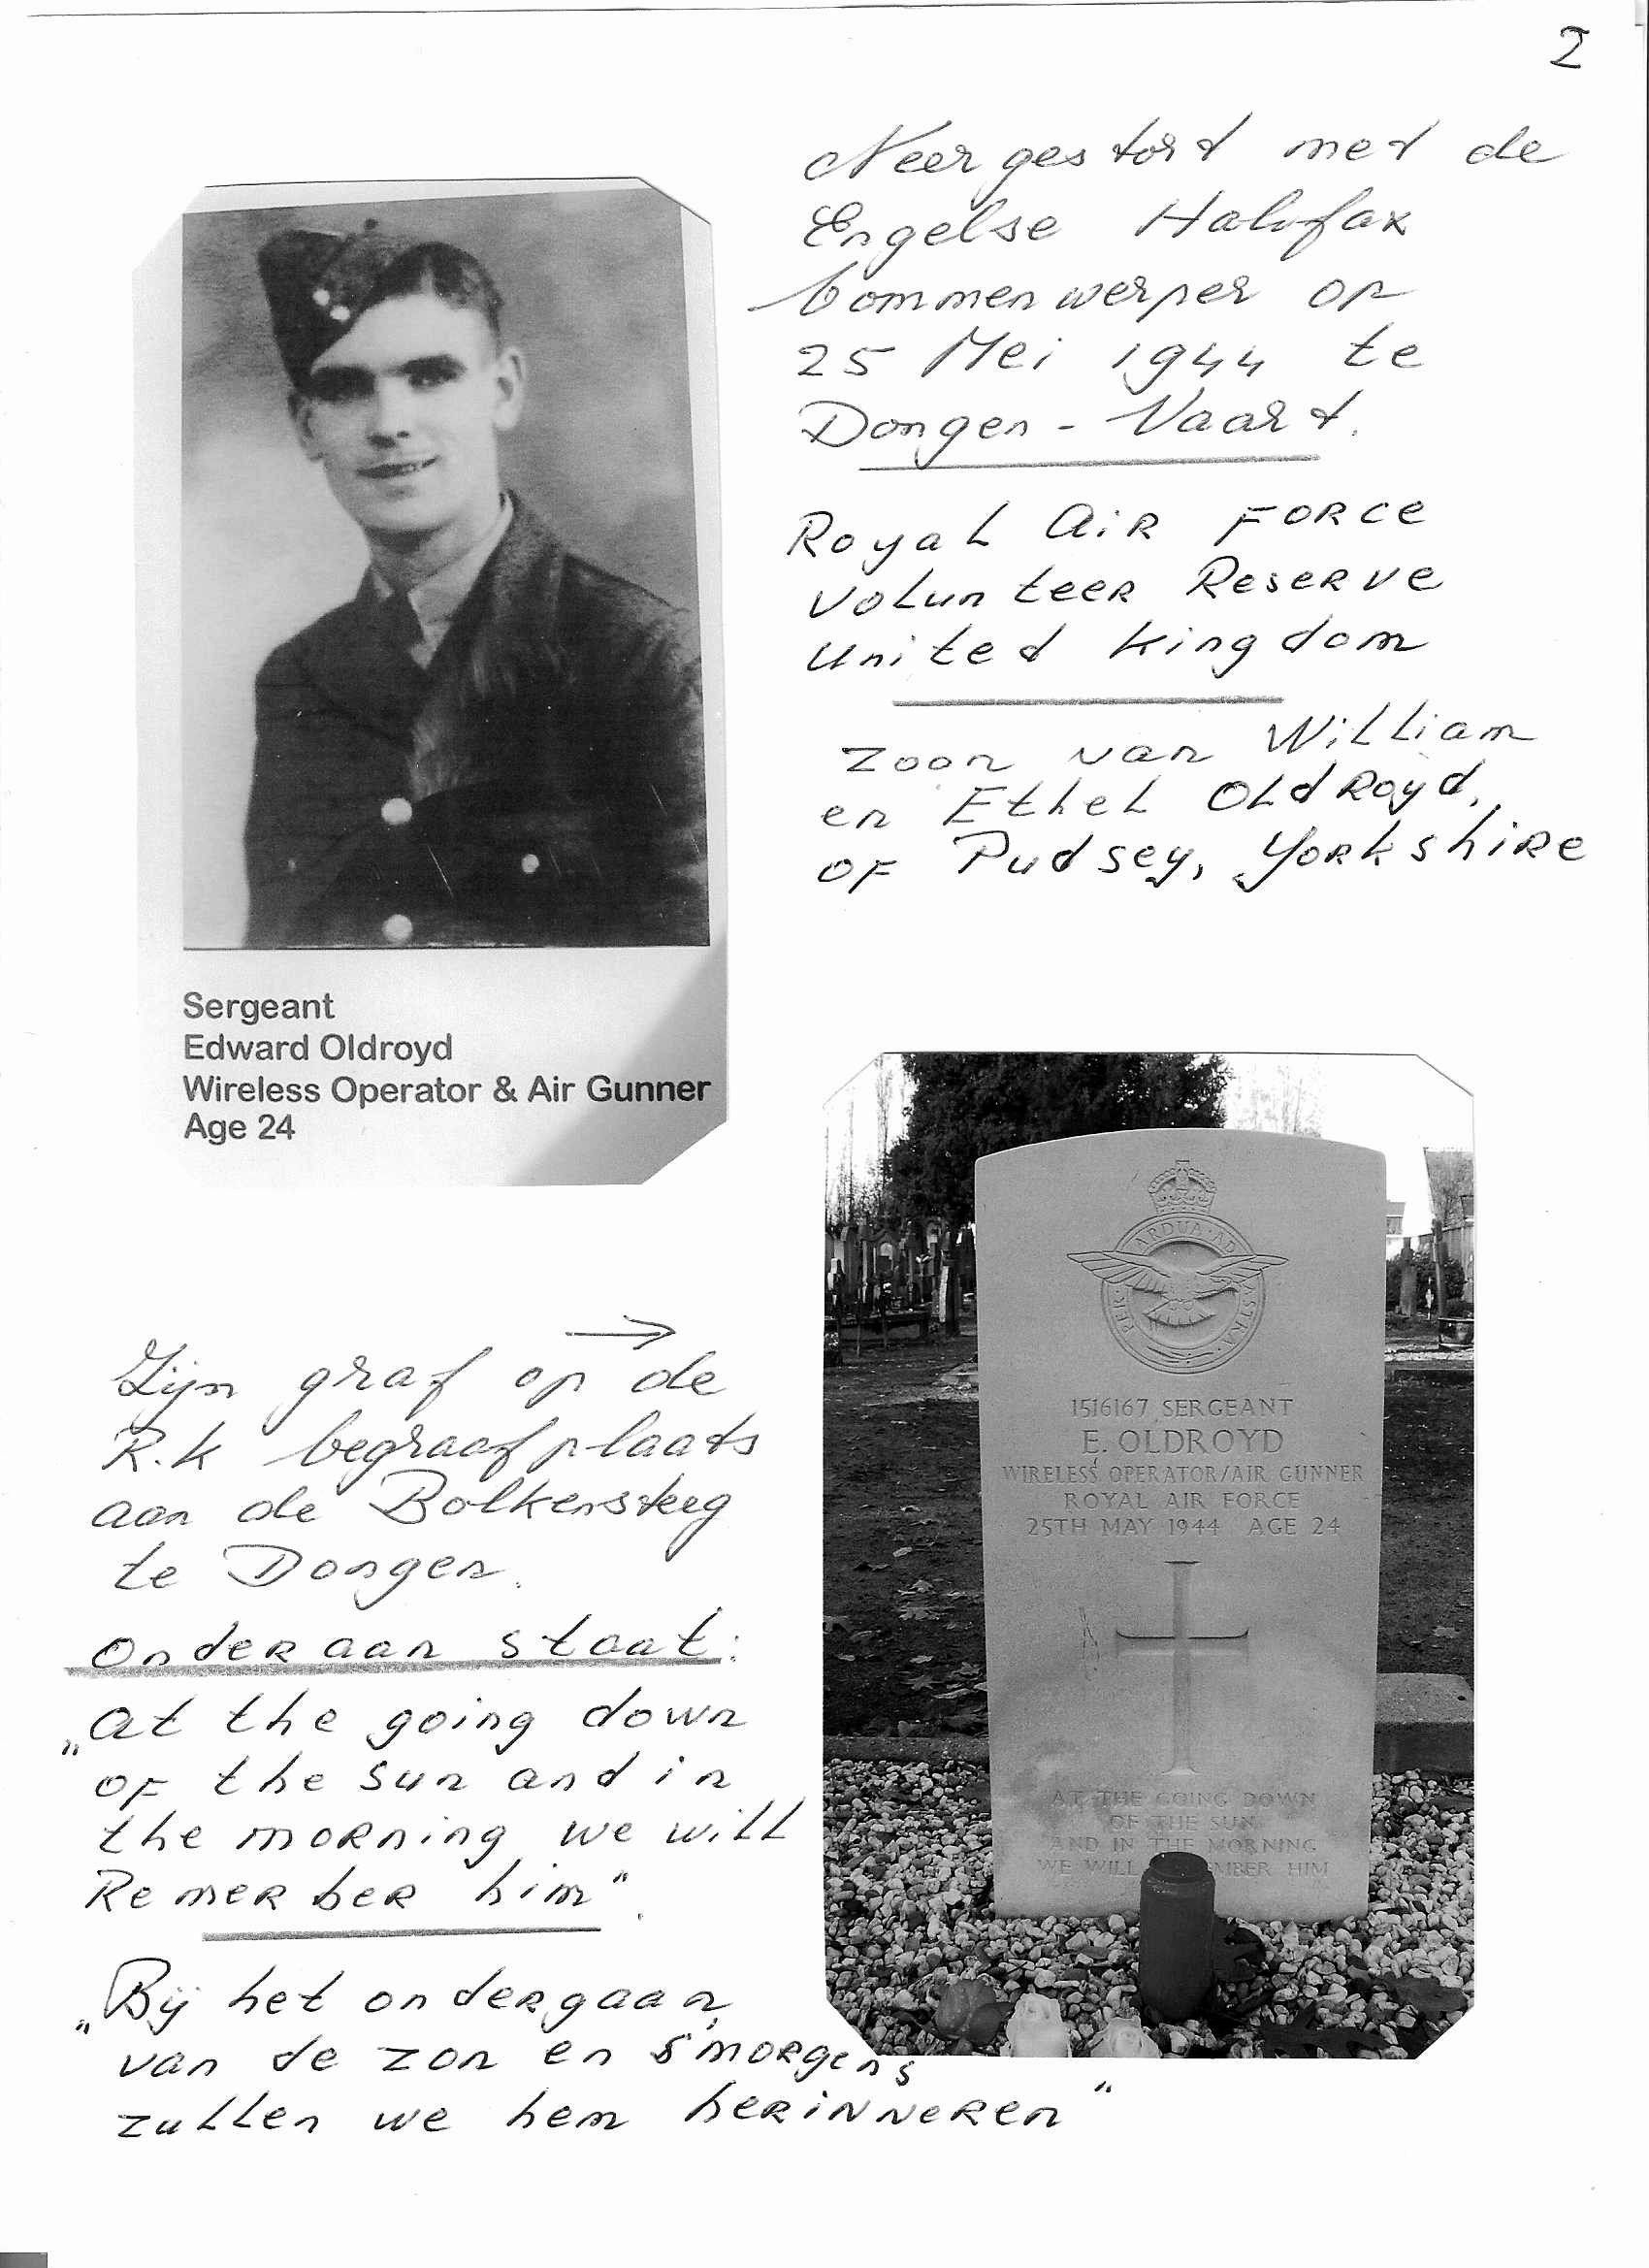 2
Neergestord met de
Engelse Halifax
bommenwerper op
25 Mei 1944 te
Dongen - Vaart.
Royal Air Force
Volunteer Reserve
United Kingdom
zoon van William
en Ethel Oldroyd,
of Pudsey, Yorkshire
Sergeant
Edward Oldroyd
Wireless Operator & Air Gunner
Age 24
PER ARDUA AD ASTRA
1516167 SERGEANT
E. OLDROYD
WIRELESS OPERATOR/AIR GUNNER
ROYAL AIR FORCE
25TH MAY 1944 AGE 24
AT THE GOING DOWN
OF THE SUN
AND IN THE MORNING
WE WILL MBER HIM
Zijn graf op de
R.k begraafplaats
aan de Bolkensteeg
te Dongen.
Onderaan staat:
„At the going down
of the sun and in
the morning we will
Remember him".
„Bij het ondergaan,
van de zon en s'morgens
zullen we hem herinneren"